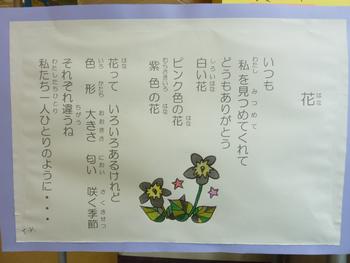 花
いつも
私を見つめてくれて
どうもありがとう
白い花
ピンク色の花
紫色の花
花って いろいろあるけれど
色 形 大きさ 匂い 咲く季節
それぞれ違うね
私たち一人ひとりのように・・・